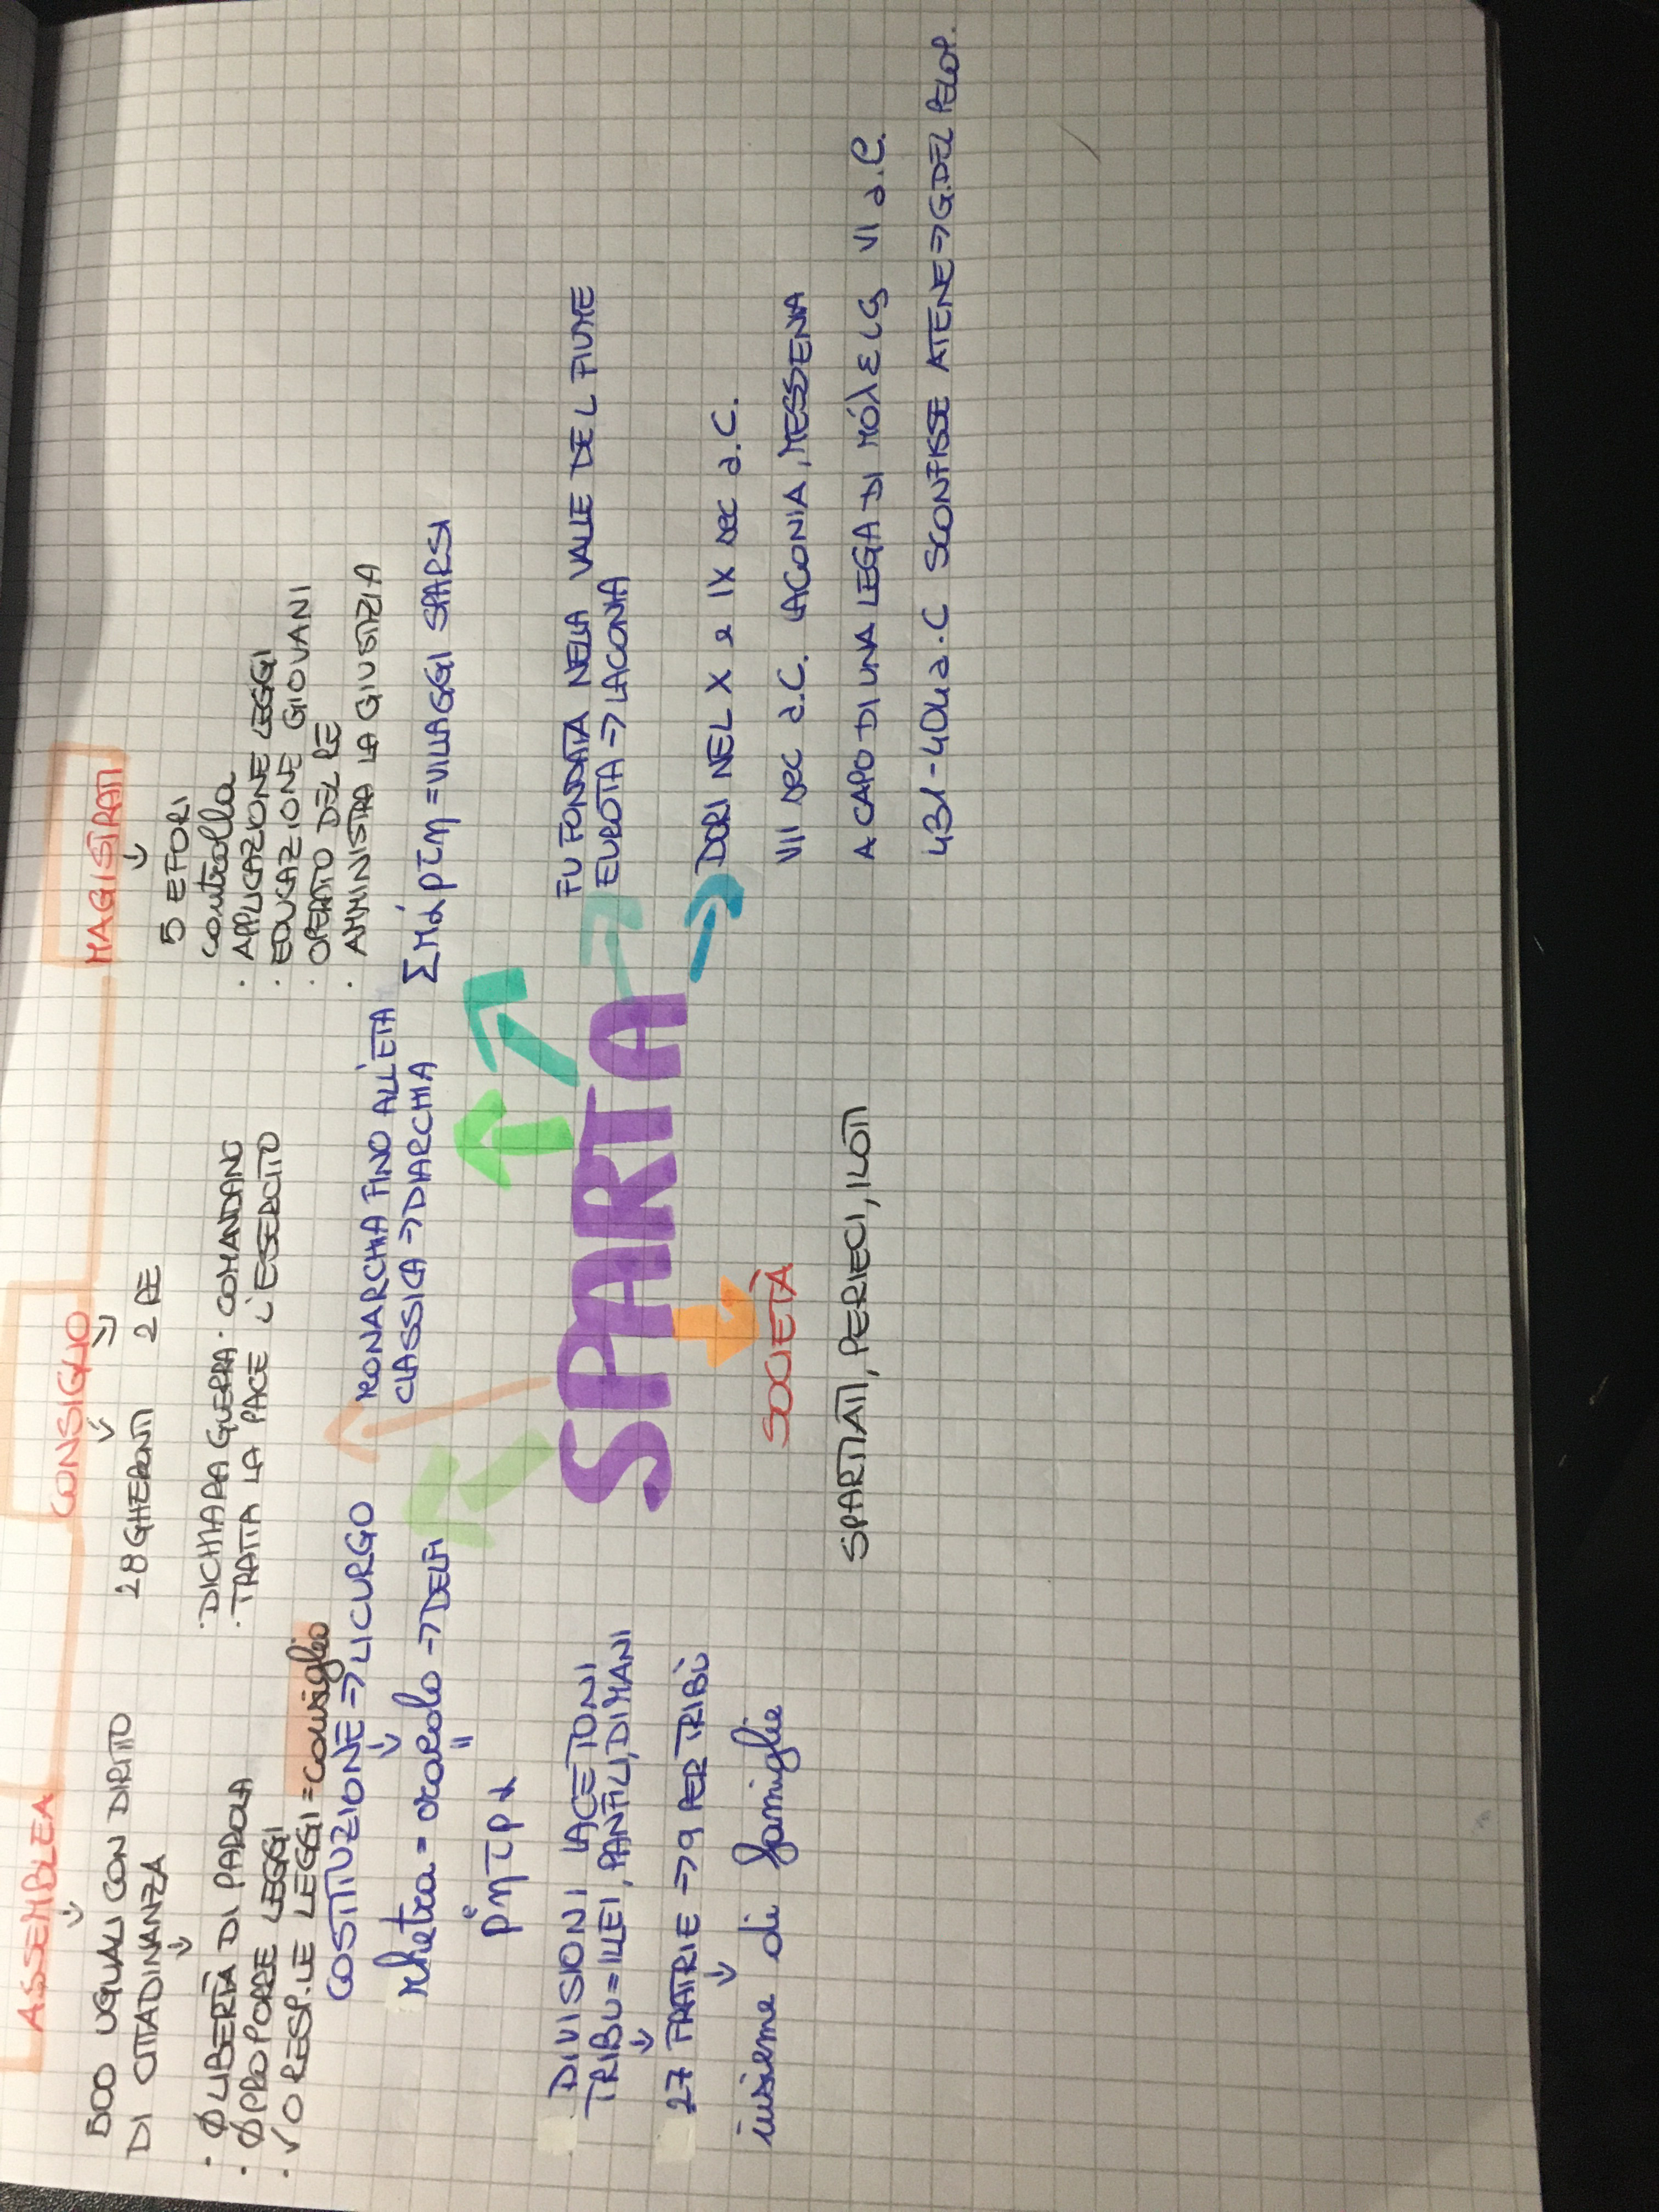 ASSEMBLEA
500 UGUALI CON DIRITTO
DI CITTADINANZA
· Ø LIBERTÀ DI PAROLA
· Ø PROPORRE LEGGI
· V O RESP. LE LEGGI = consiglio
CONSIGLIO
28 GHERONTI
2 RE
· DICHIARA GUERRA
· TRATTA LA PACE
· COMANDANO
L'ESERCITO
MAGISTRATI
5 EFORI
controlla
· APPLICAZIONE LEGGI
· EDUCAZIONE GIOVANI
· OPERATO DEL RE
· AMMINISTRA LA GIUSTIZIA
COSTITUZIONE => LICURGO
rhetra = oracolo -> DELFI
=
ῥητρα
MONARCHIA FINO ALL'ETÀ
CLASSICA => DIARCHIA
Σπάρτη = VILLAGGI SPARSI
SPARTA
FU FONDATA NELLA VALLE DEL FIUME
EUROTA => LACONIA
DORI NEL X e IX sec a.C.
VII sec a.C. LACONIA, MESSENIA
A CAPO DI UNA LEGA DI πόλεις VI a.C.
431-404 a.C SCONFISSE ATENE => G. DEL PELOP.
DIVISIONI LACETONI
TRIBU = ILLEI, PANFILI, DIMANI
27 FRATRIE => 9 PER TRIBÙ
insieme di famiglie
SOCIETÀ
SPARTIATI, PERIECI, ILOTI